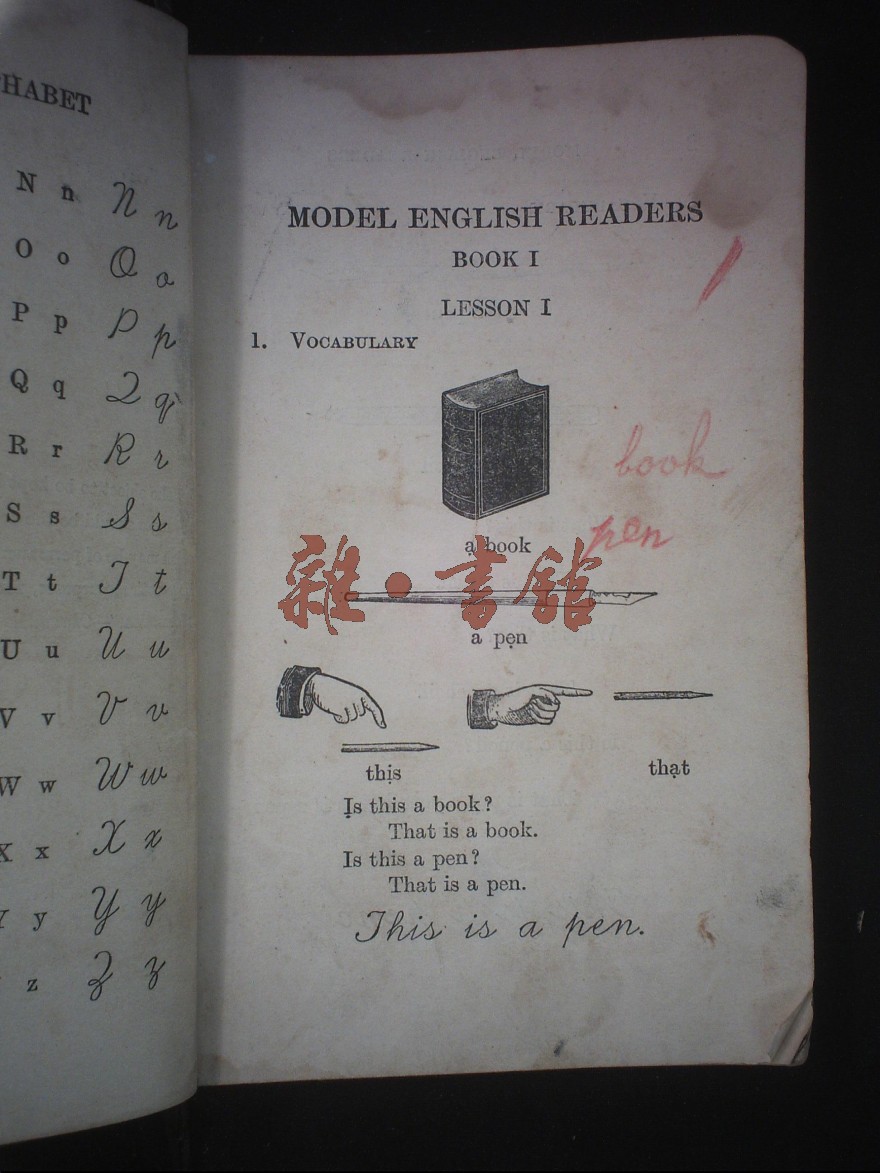 HABET
N n N n
O o O o
P p P p
Q q Q q
R r R r
S s S s
T t T t
U u U u
V v V v
W w W w
X x X x
Y y Y y
z Z z
MODEL ENGLISH READERS
BOOK I
LESSON I
1. VOCABULARY
book
pen
a book
雜·書館
a pen
this that
Is this a book?
That is a book.
Is this a pen?
That is a pen.
This is a pen.